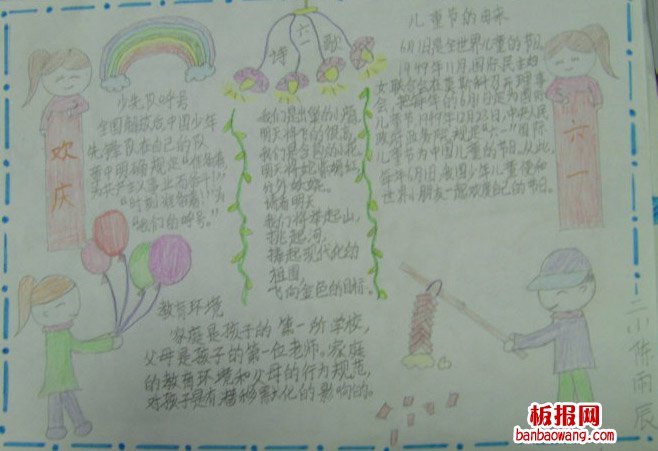 欢庆
少先队呼号
全国解放后中国少年
先锋队在自己的队
章中明确规定“准备着
为共产主义事业而奋斗!”
“时刻准备着!”为
“我们的呼号。”
诗歌
六一
我们是出巢的小鹰
明天将飞的很高
我们是含苞的小花
明天将
分外
我们将举起山,
挑起河,
捧起现代化的
祖国,
飞向金色的目标。
儿童节的由来
6月1日是全世界儿童的节日。
1949年11月,国际民主妇
女联合会在莫斯科召开理事
会,把每年的6月1日定为国际
儿童节。1949年12月23日,中央人民
政府政务院规定“六一”国际
儿童节为中国儿童的节日。从此,
每年6月1日我国少年儿童便和
世界小朋友一起欢度自己的节日。
六一
教育环境
家庭是孩子的第一所学校,
父母是孩子的第一位老师。家庭
的教育环境和父母的行为规范,
对孩子是有潜移默化的影响的。
二小陈雨辰
板报网
banbaowang.com